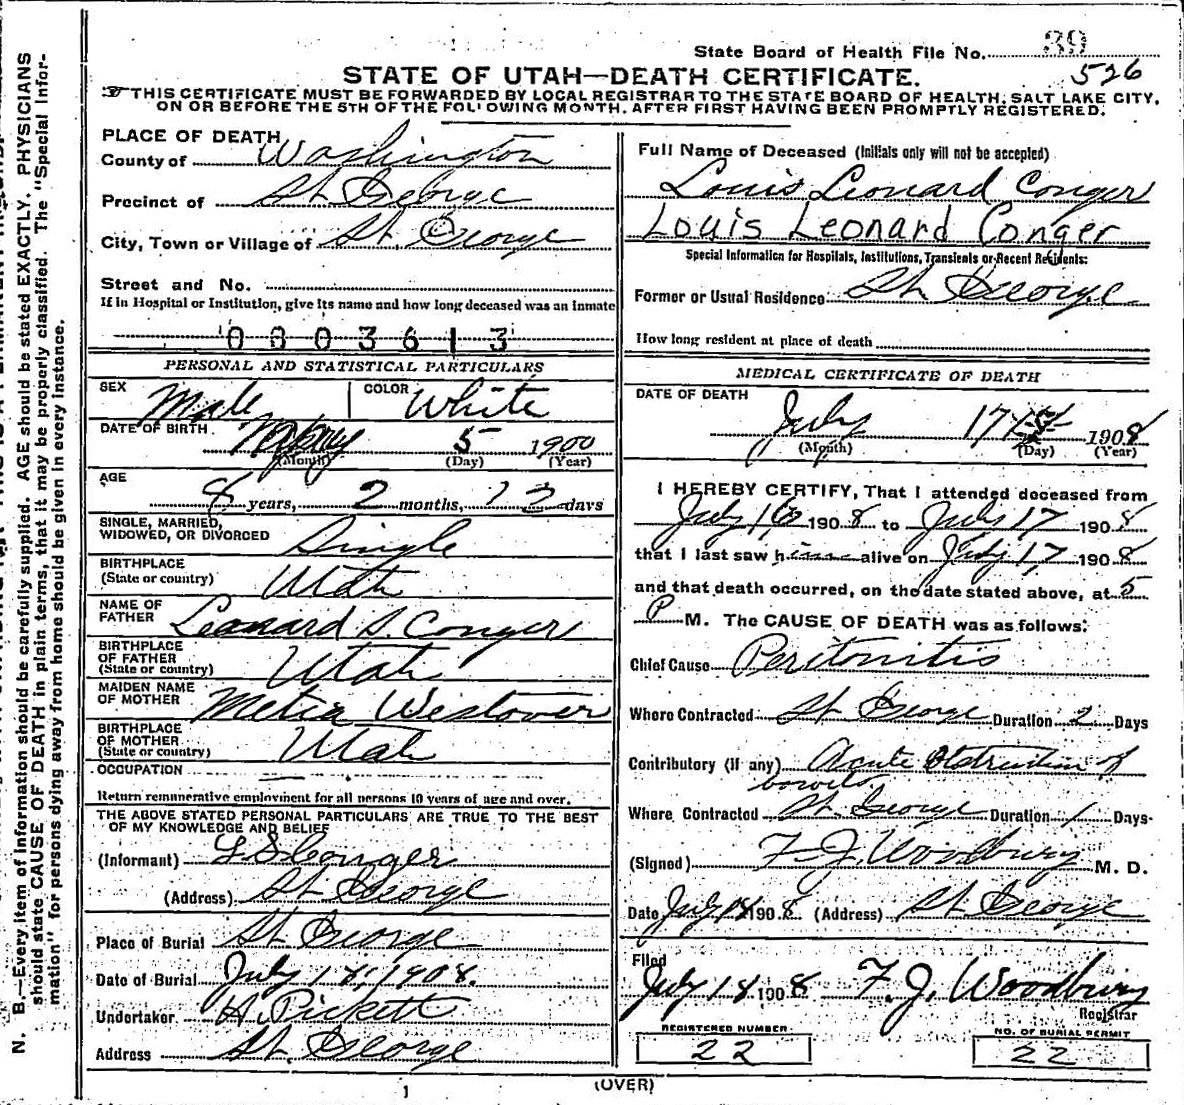 State Board of Health File No. 39
526
STATE OF UTAH—DEATH CERTIFICATE.
THIS CERTIFICATE MUST BE FORWARDED BY LOCAL REGISTRAR TO THE STATE BOARD OF HEALTH, SALT LAKE CITY,
ON OR BEFORE THE 5TH OF THE FOLLOWING MONTH, AFTER FIRST HAVING BEEN PROMPTLY REGISTERED.
N. B.—Every item of information should be carefully supplied. AGE should be stated EXACTLY. PHYSICIANS
should state CAUSE OF DEATH in plain terms, that it may be properly classified. The "Special Infor-
mation" for persons dying away from home should be given in every instance.
PLACE OF DEATH
County of Washington
Precinct of St George
City, Town or Village of St. George
Street and No.
If in Hospital or Institution, give its name and how long deceased was an inmate
0003613
PERSONAL AND STATISTICAL PARTICULARS
SEX Male COLOR White
DATE OF BIRTH 5 1900
(Month) (Day) (Year)
AGE
8 years, 2 months, 12 days
SINGLE, MARRIED,
WIDOWED, OR DIVORCED Single
BIRTHPLACE
(State or country) Utah
NAME OF
FATHER Leonard S. Conger
BIRTHPLACE
OF FATHER
(State or country) Utah
MAIDEN NAME
OF MOTHER Westover
BIRTHPLACE
OF MOTHER
(State or country) Utah
OCCUPATION
Return remunerative employment for all persons 10 years of age and over.
THE ABOVE STATED PERSONAL PARTICULARS ARE TRUE TO THE BEST
OF MY KNOWLEDGE AND BELIEF
(Informant) L S Conger
(Address) St George
Place of Burial St George
Date of Burial July 18, 1908.
Undertaker H. Pickett
Address St. George
Full Name of Deceased (Initials only will not be accepted)
Louis Leonard Conger
Louis Leonard Conger
Special Information for Hospitals, Institutions, Transients or Recent Residents:
Former or Usual Residence St George
How long resident at place of death
MEDICAL CERTIFICATE OF DEATH
DATE OF DEATH
July 17 1908
(Month) (Day) (Year)
I HEREBY CERTIFY, That I attended deceased from
July 16 1908 to July 17 1908
that I last saw him alive on July 17, 1908
and that death occurred, on the date stated above, at 5
P M. The CAUSE OF DEATH was as follows:
Chief Cause Peritonitis
Where Contracted St George Duration 2 Days
Contributory (if any) Acute Obstruction of
bowels
Where Contracted St. George Duration 1 Days
(Signed) F. J. Woodbury M. D.
Date July 18 1908 (Address) St. George
Filed
July 18 1908 F. J. Woodbury
Registrar
REGISTERED NUMBER
22
NO. OF BURIAL PERMIT
22
(OVER)